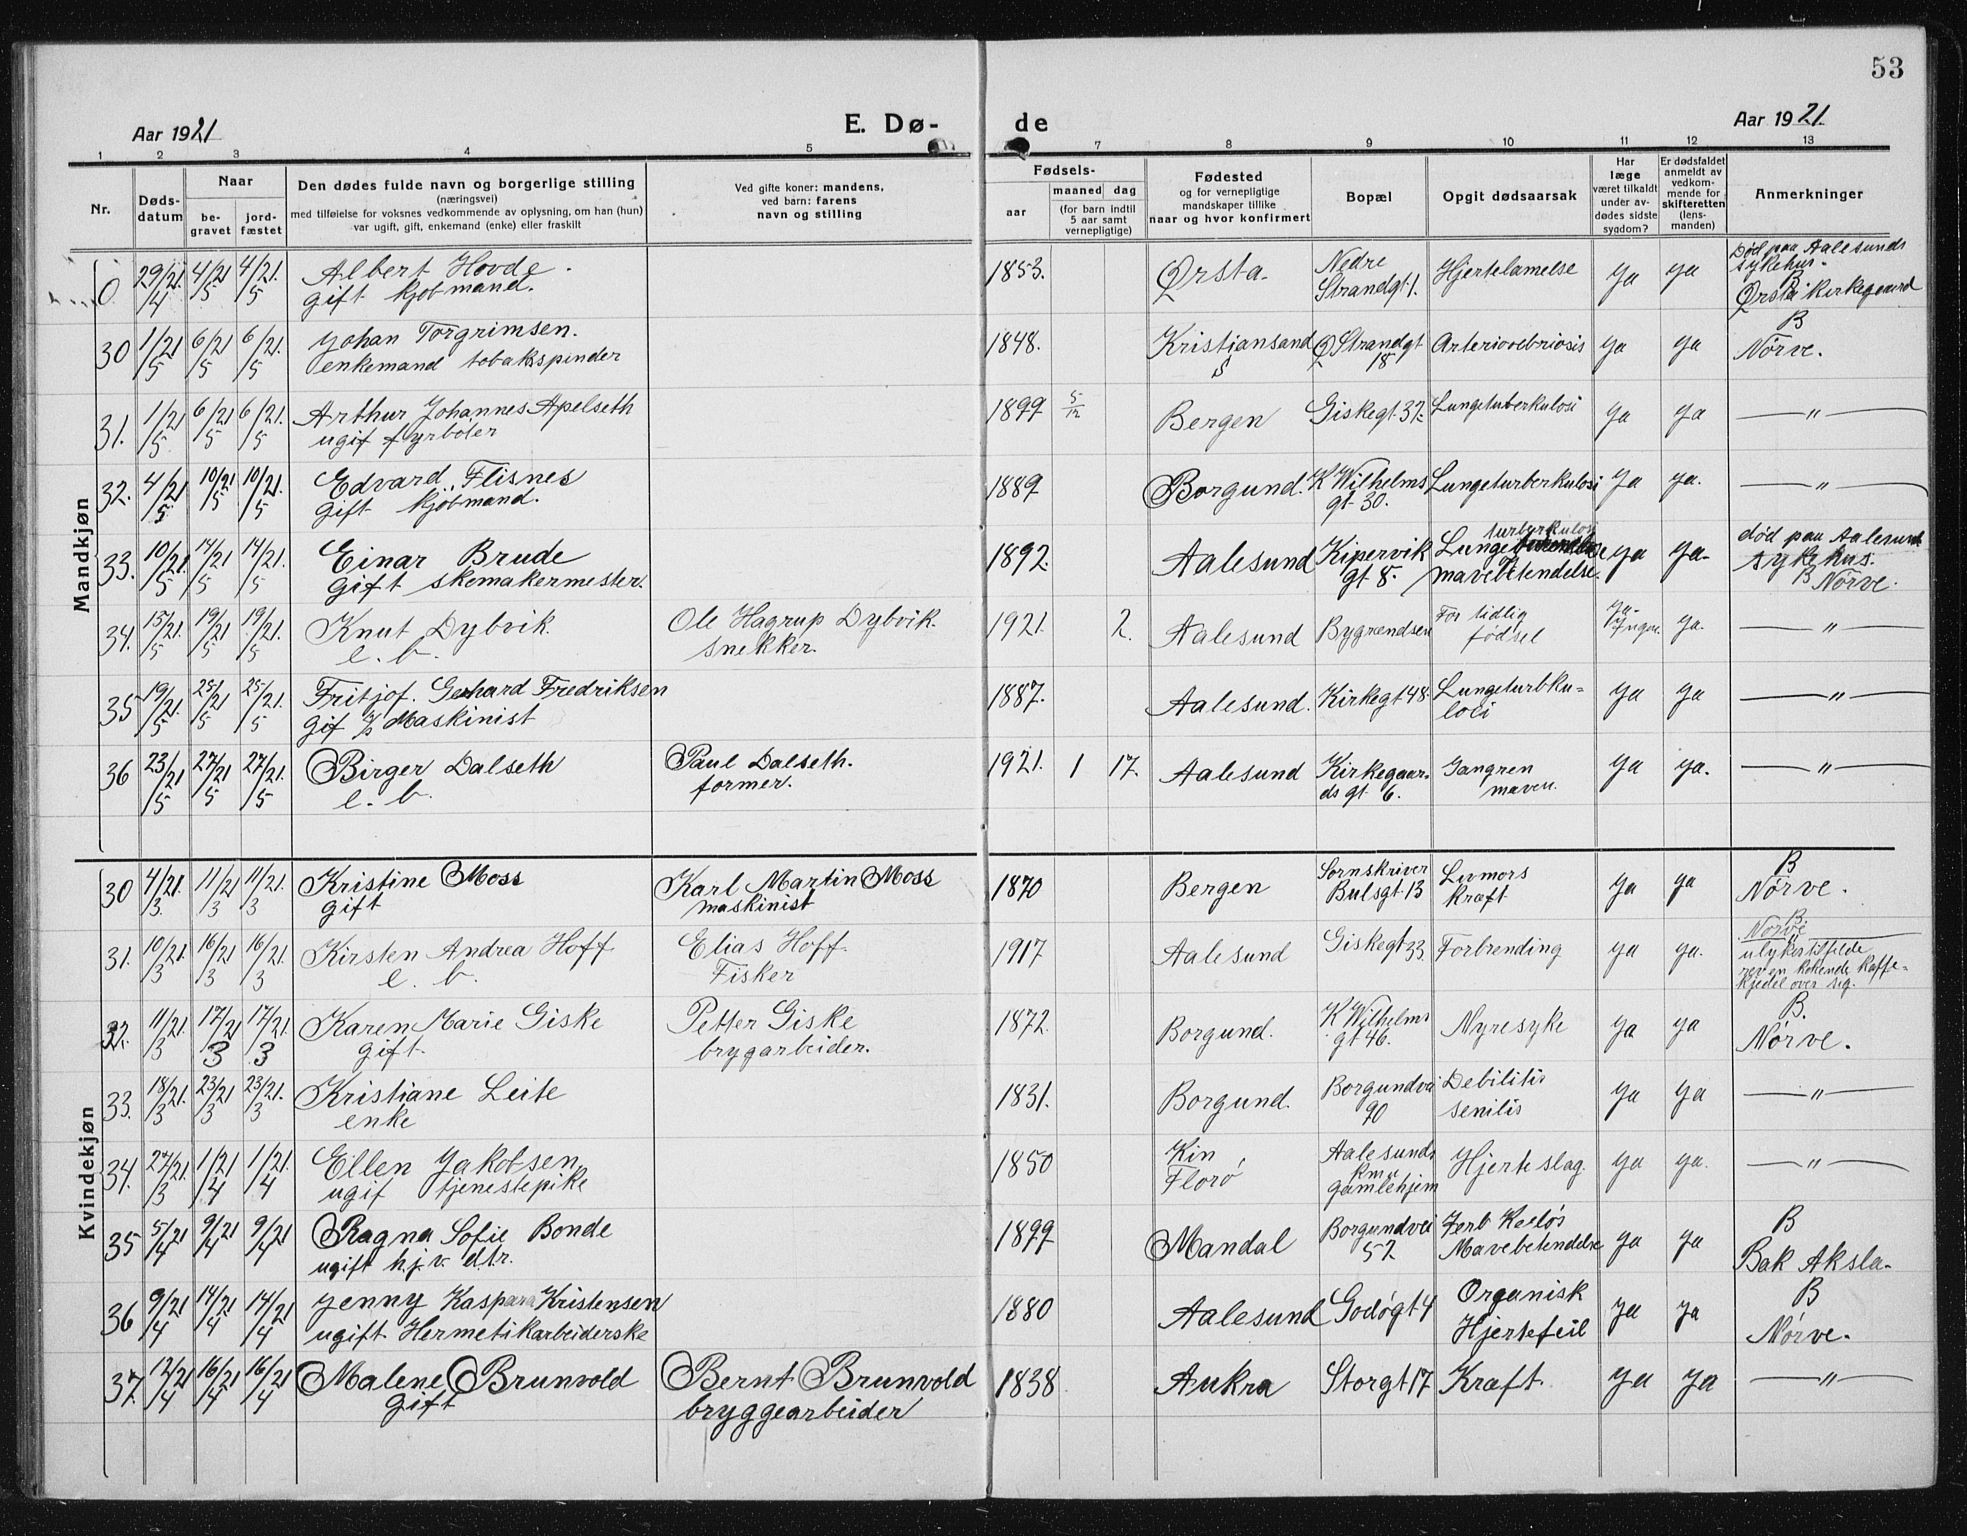 53
Aar 1921
E. Dø-
de
Aar 1921.
1 2 3 4 5 7 8 9 10 11 12 13
Nr.
Døds-
datum
Naar
be-
gravet
jord-
fæstet
Den dødes fulde navn og borgerlige stilling
(næringsvei)
med tilføielse for voksnes vedkommende av oplysning, om han (hun)
var ugift, gift, enkemand (enke) eller fraskilt
Ved gifte koner: mandens,
ved barn: farens
navn og stilling
Fødsels-
aar
maaned
dag
(for barn indtil
5 aar samt
vernepligtige)
Fødested
og for vernepligtige
mandskaper tillike
naar og hvor konfirmert
Bopæl
Opgit dødsaarsak
Har
læge
været tilkaldt
under av-
dødes sidste
sygdom?
Er dødsfaldet
anmeldt av
vedkom-
mende for
skifteretten
(lens-
manden)
Anmerkninger
Mandkjøn
0 29/4 21 4/5 21 4/5 21. Albert Hovde.
gift kjøbmand.
1853. Ørsta. Nedre
Strandgt 1. Hjertelamelse ja ja
Død paa Aalesunds
sykehus.
B
Ørsta kirkegaard
30 1/5 21 6/5 21 6/5 21. Johan Torgrimsen.
enkemand tobakspinder
1848. Kristjansand
S
Ø Strandgt
18 ja ja
B
Nørve.
31. 1/5 21 6/5 21 6/5 21. Arthur Johannes Apelseth
ugif fyrbøter
1899 5/12 Bergen Giskegt 37. Lungetuberkulosi ja ja
— " —
32. 4/5 21 10/5 21 10/5 21. Edvard Flisnes
Gift kjøbmand.
1889 Borgund. K Wilhelms
gt 30. Lungeturberkulosi ja ja.
— " —
33. 10/5 21. 14/5 21 14/5 21. Einar Brude
Gift skomakermester.
1892. Aalesund Kipervik
gt 8. turberkulosi
Lunge
mavebetendelse. ja ja-
død paa Aalesunds
sykehus.
B Nørve.
34. 15/5 21. 19/5 21 19/5 21. Knut Dybvik.
e. b.
Ole Hagrup Dybvik.
snekker.
1921. 2. Aalesund Bygrændsen For tidlig
fødsel ja.
— " —
35 19/5 21. 25/5 21 25/5 21. Fritjof. Gerhard Fredriksen
Gif Maskinist
1887. Aalesund. Kirkegt 48. Lungeturbku=
losi ja ja
— " —
36 23/5 21 27/5 21 27/5 21. Birger Dalseth
e. b.
Paul Dalseth.
former.
1921. 1 17. Aalesund Kirkegaar-
ds gt. 6. Gangren
maven. ja ja.
— " —
Kvindekjøn
30 4/3 21. 11/3 21 11/3 21. Kristine Moss
gift
Karl Martin Moss
maskinist
1870 Bergen Sornskriver
Bulsgt. 13 Livmors
kræft ja ja
B
Nørve.
31. 10/3 21. 16/3 21 16/3 21. Kirsten Andrea Hoff
e. b.
Elias Hoff.
Fisker
1917 Aalesund Giskegt 33. Forbrending ja ja.
B.
Nørve
ulykestilfelde
rev en kokende kaffe-
kjedel over sig.
32. 11/3 21. 17/3 21 17/3 21. Karen Marie Giske
gift.
Petter Giske
brygarbeider.
1872. Borgund. K Wilhelms
gt 46. Nyresyke ja ja
B.
Nørve.
33. 18/3 21. 23/3 21 23/3 21. Kristiane Leite
enke
1831. Borgund. Borgundvei
90 Debilitis
senilis ja ja
— " —
34. 27/3 21. 1/4 21 1/4 21. Ellen Jakobsen
ugif tjenestepike
1850 Kin
Florø Aalesunds
kmu
gamlehjem Hjerteslag. ja ja.
— " —
35 5/4 21 9/4 21 9/4 21 Ragna Sofie Bonde
ugift hj. v. dtr.
1899 Mandal Borgundvei
52
Mavebetendelse ja ja
B
Bak Aksla-
36 9/4 21 14/4 21 14/4 21 Jenny Kaspara Kristensen
ugift Hermetikarbeiderske
1880 Aalesund Godøgt 4 Organisk
Hjertefeil ja ja
B
Nørve.
37. 12/4 21 16/4 21 16/4 21 Malene Brunvold
Gift
Bernt Brunvold
bryggearbeider
1838 Aukra Storgt 17 Kræft. ja ja
— " —